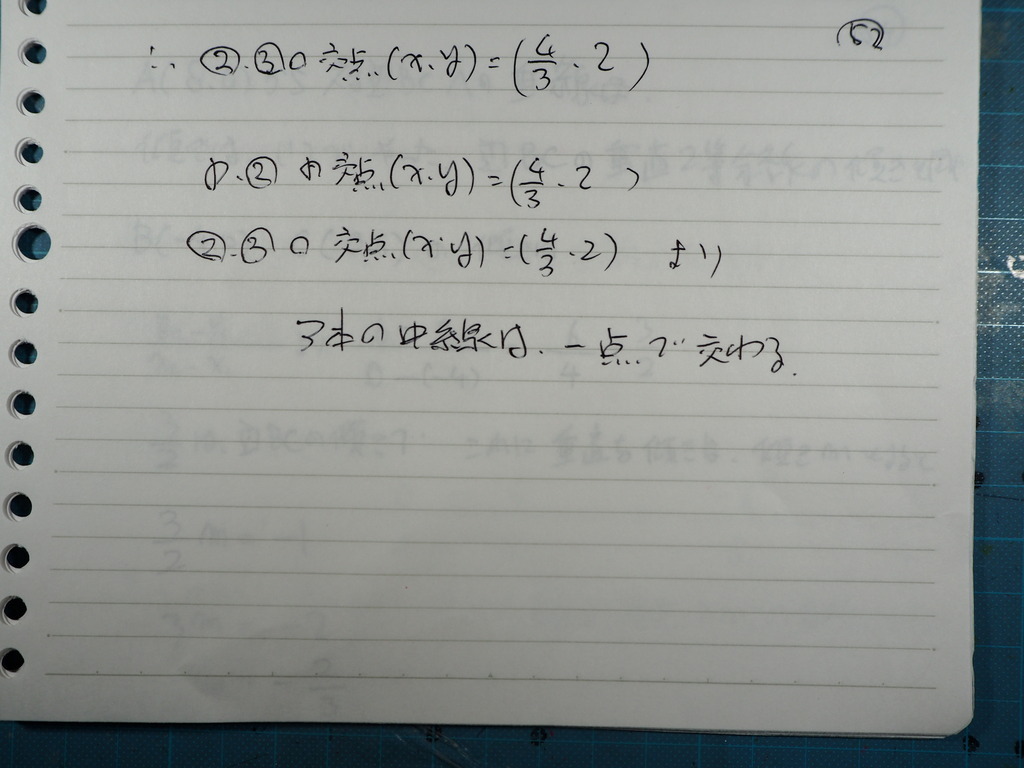 52
∴ ②.③の交点(x.y)=(4/3.2)
①.②の交点(x.y)=(4/3.2)
②.③の交点(x.y)=(4/3.2) より
3本の中線は.一点で交わる.